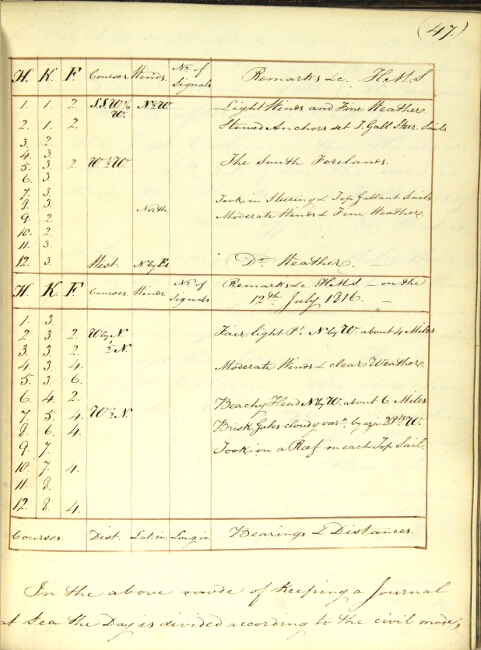 (47.)
H. K. F. Courses. Winds. No. of Signals Remarks &c. H.M.S
1. 1. 2. SSW½W. NbW Light Winds and Fine Weather
2. 1. 2. Stowed Anchors set T. Gall Steer. Sails
3. 2
4. 3.
5. 3. 2. W½W The South Forelands.
6. 3
7. 3. Took in Steering & Top Gallant Sails
8. 3. North Moderate Winds & Fine Weather
9. 2.
10. 2.
11. 3.
12. 3. West. NbyE Do. Weather.
H. K. F. Courses Winds. No. of Signals Remarks &c. H.M.S — on the
12th July 1816. —
1. 3.
2. 3. 2. WbyN Fair light Pt. NbyW. about 4 Miles
3. 3. 2. ½N.
4. 3. 4. Moderate Winds & clear Weather.
5. 3. 6.
6. 4. 2. Beachy Head NbyW. about 6 Miles
7. 5. 4. W½N Brisk Gales cloudy varn. by azh
8. 6. 4.
9. 7. Took in a Reef in each Top Sail.
10. 7. 4.
11. 8.
12. 8. 4.
Courses. Dist. Lat.in. Long.in Bearings & Distances.
In the above mode of keeping a Journal
at Sea the Day is divided according to the civil mode;